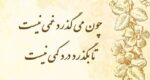 چون می گذرد غمی نیست
تا بگذرد درد کمی نیست